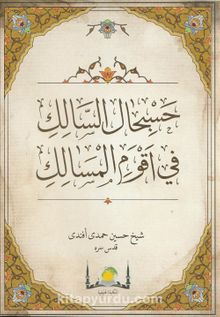 حَسْبِحَالِ السَّالِكِ
فِي أَقْوَمِ الْمَسَالِكِ
شيخ حسين حمدى أفندى
قدس سره
kitapyurdu.com